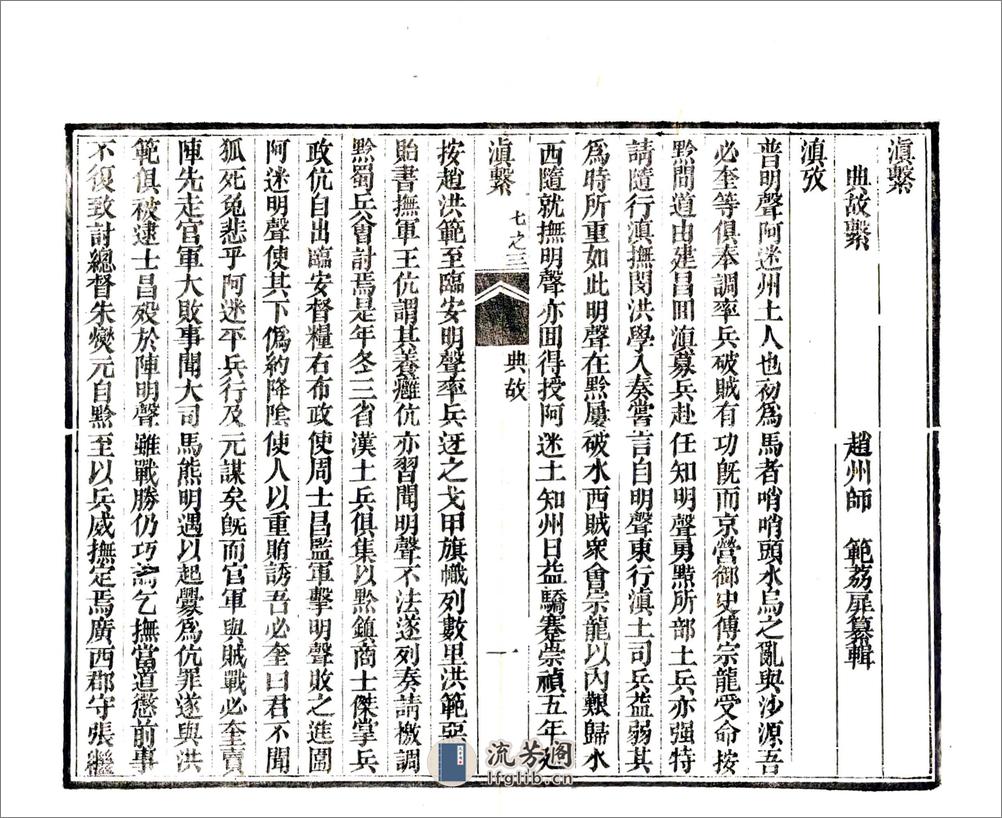 滇繫
典故繫　趙州師　範荔扉纂輯
滇攷
普明聲阿迷州土人也初爲馬者哨哨頭水烏之亂與沙源吾
必奎等俱奉調率兵破賊有功旣而京營御史傅宗龍受命按
黔問道由建昌囬滇募兵赴任知明聲勇黠所部土兵亦强特
請隨行滇撫閔洪學入奏嘗言自明聲東行滇土司兵益弱其
爲時所重如此明聲在黔屢破水西賊衆會宗龍以内艱歸水
西隨就撫明聲亦囬得授阿迷土知州日益驕蹇崇禎五年
滇繫　七之三　典故　一
按趙洪範至臨安明聲率兵迓之戈甲旗幟列數里洪範惡
貽書撫軍王伉謂其養癰伉亦習聞明聲不法遂列奏請檄調
黔蜀兵會討焉是年冬三省漢土兵俱集以黔鎮商士傑掌兵
政伉自出臨安督糧右布政使周士昌監軍擊明聲敗之進圍
阿迷明聲使其下僞約降陰使人以重賄誘吾必奎曰君不聞
狐死兔悲乎阿迷平兵行及元謀矣旣而官軍與賊戰必奎賣
陣先走官軍大敗事聞大司馬熊明遇以起釁爲伉罪遂與洪
範俱被逮士昌殁於陣明聲雖戰勝仍巧詞乞撫當道懲前事
不復致討總督朱爕元自黔至以兵威撫定焉廣西郡守張繼
流芳阁
lfglib.cn